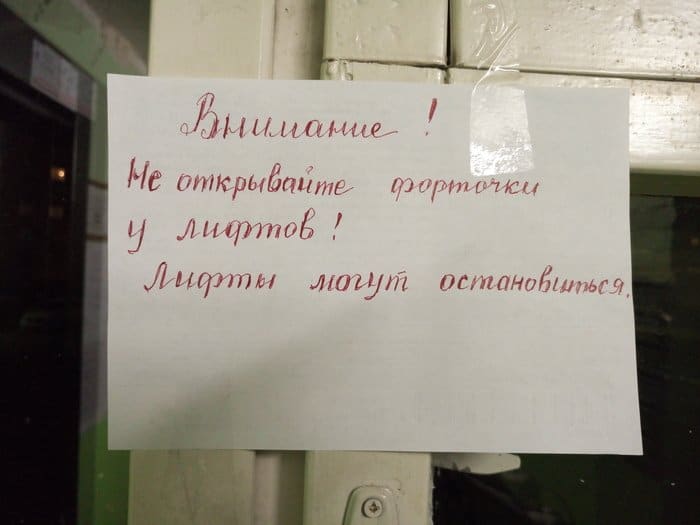 Внимание !
Не открывайте форточки
у лифтов !
Лифты могут остановиться.